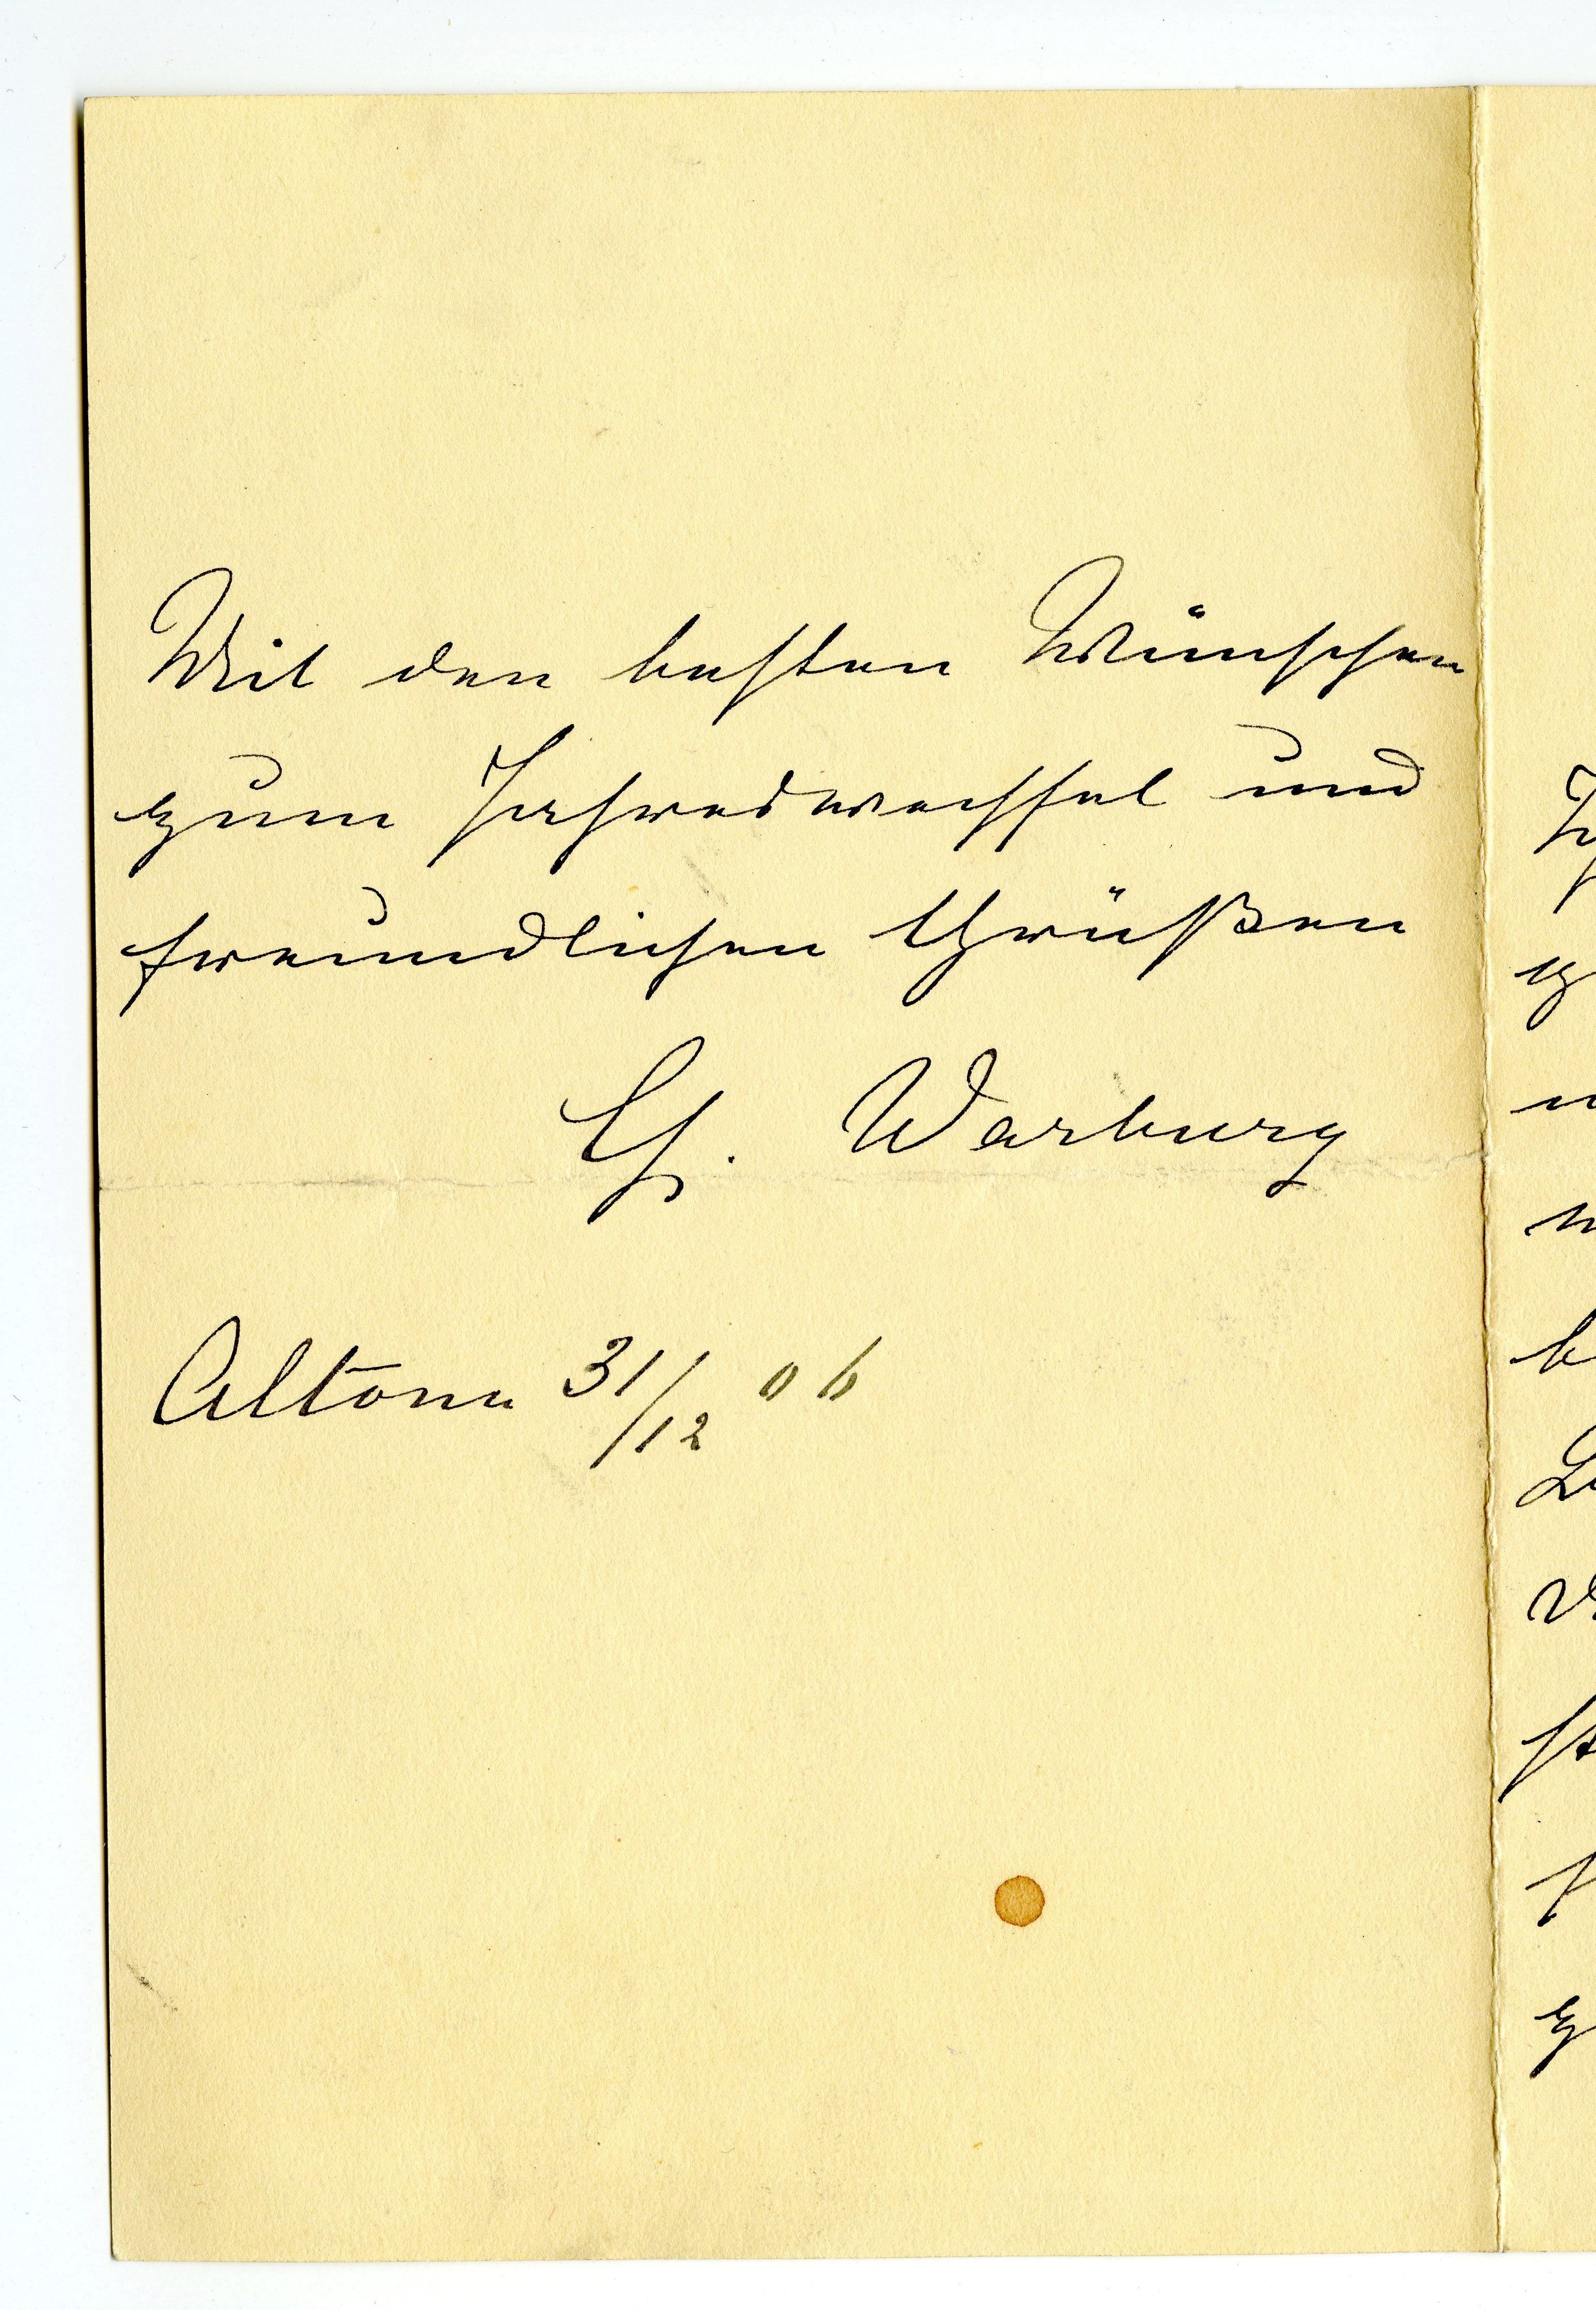 Mit den besten Wünschen
zum Jahreswechsel und
freundlichen Grüßen
G. Warburg
Altona 31/12 06